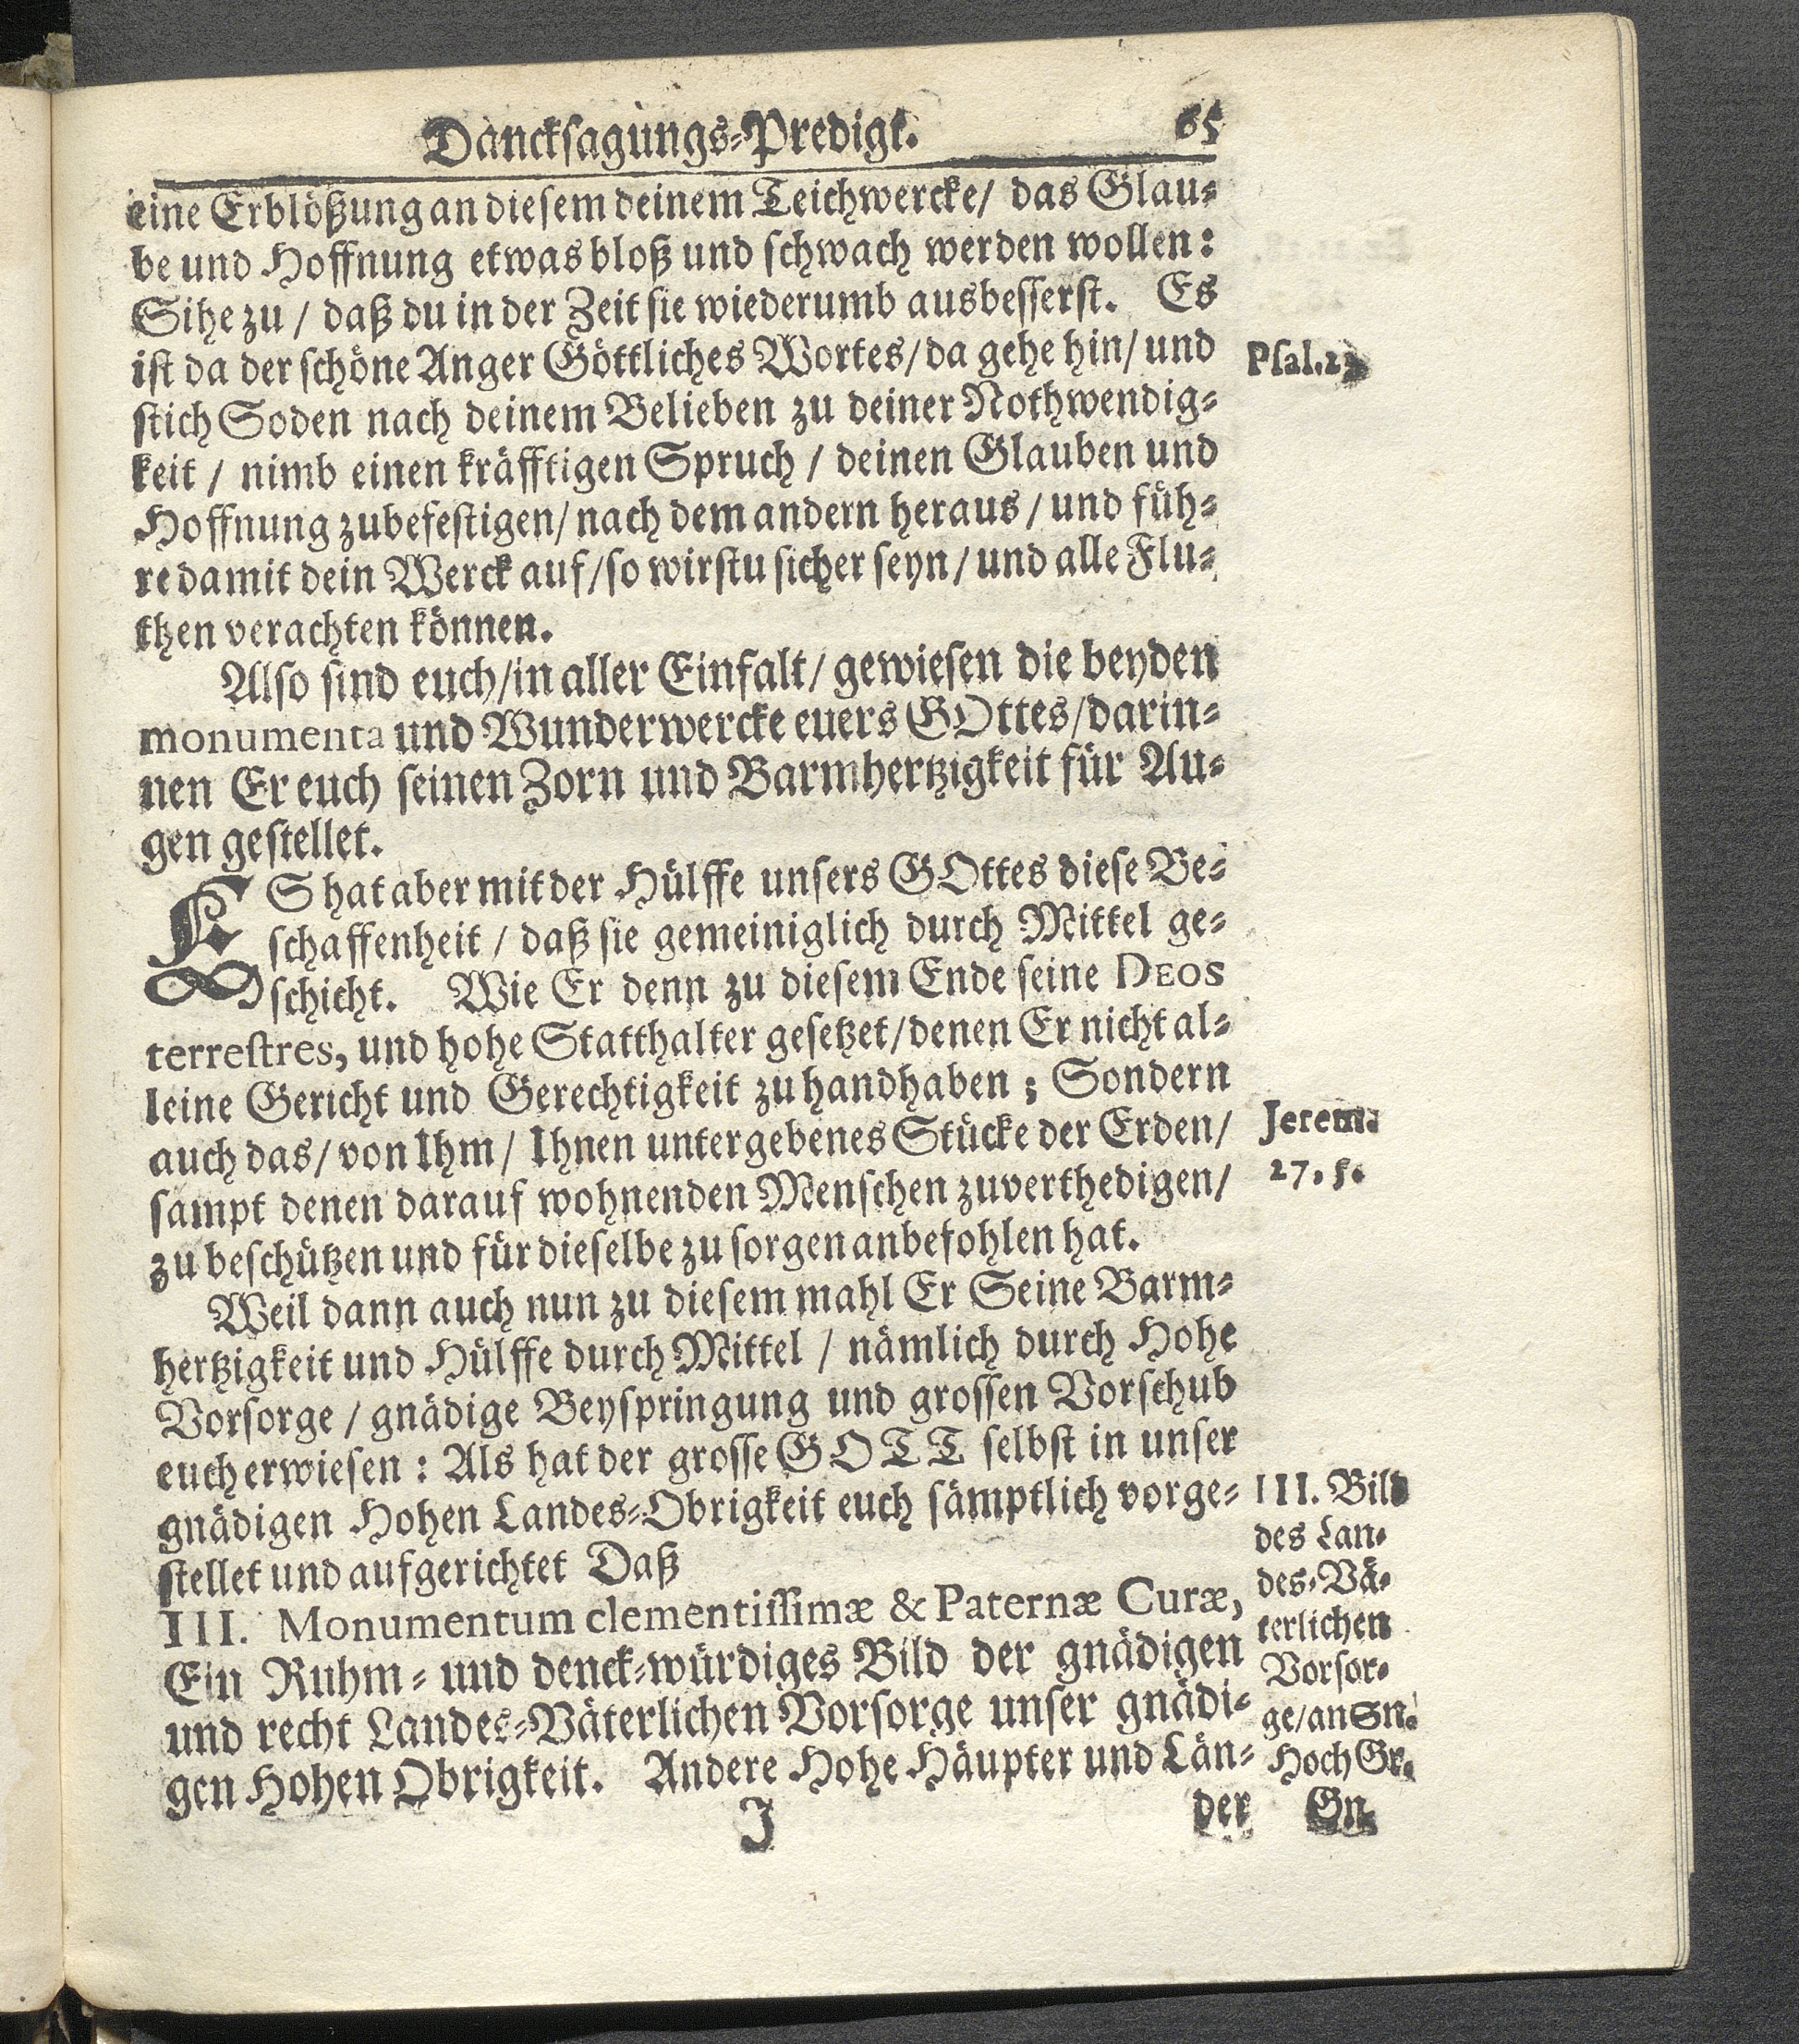 Dancksagungs-Predigt. 65
eine Erblößung an diesem deinem Teichwercke/ das Glau-
be und Hoffnung etwas bloß und schwach werden wollen:
Sihe zu / daß du in der Zeit sie wiederumb ausbesserst. Es
ist da der schöne Anger Göttliches Wortes/ da gehe hin/ und
stich Soden nach deinem Belieben zu deiner Nothwendig-
keit / nimb einen kräfftigen Spruch / deinen Glauben und
Hoffnung zubefestigen/ nach dem andern heraus / und füh-
re damit dein Werck auf/ so wirstu sicher seyn / und alle Flu-
then verachten können.
Also sind euch/ in aller Einfalt/ gewiesen die beyden
monumenta und Wunderwercke euers GOttes/ darin-
nen Er euch seinen Zorn und Barmhertzigkeit für Au-
gen gestellet.
ES hat aber mit der Hülffe unsers GOttes diese Be-
schaffenheit / daß sie gemeiniglich durch Mittel ge-
schicht. Wie Er denn zu diesem Ende seine DEOS
terrestres, und hohe Statthalter gesetzet/ denen Er nicht al-
leine Gericht und Gerechtigkeit zu handhaben; Sondern
auch das/ von Ihm/ Ihnen untergebenes Stücke der Erden/
sampt denen darauf wohnenden Menschen zuverthedigen/
zu beschützen und für dieselbe zu sorgen anbefohlen hat.
Weil dann auch nun zu diesem mahl Er Seine Barm-
hertzigkeit und Hülffe durch Mittel / nämlich durch Hohe
Vorsorge / gnädige Beyspringung und grossen Vorschub
euch erwiesen: Als hat der grosse GOTT selbst in unser
gnädigen Hohen Landes-Obrigkeit euch sämptlich vorge-
stellet und aufgerichtet Daß
III. Monumentum clementissimæ & Paternæ Curæ,
Ein Ruhm- und denck-würdiges Bild der gnädigen
und recht Landes-Väterlichen Vorsorge unser gnädi-
gen Hohen Obrigkeit. Andere Hohe Häupter und Län-
J der
Psal.
Jerem.
27. 5.
III. Bild
des Lan-
des-Vä-
terlichen
Vorsor-
ge/ an Sn.
Hoch Gr.
Gn.